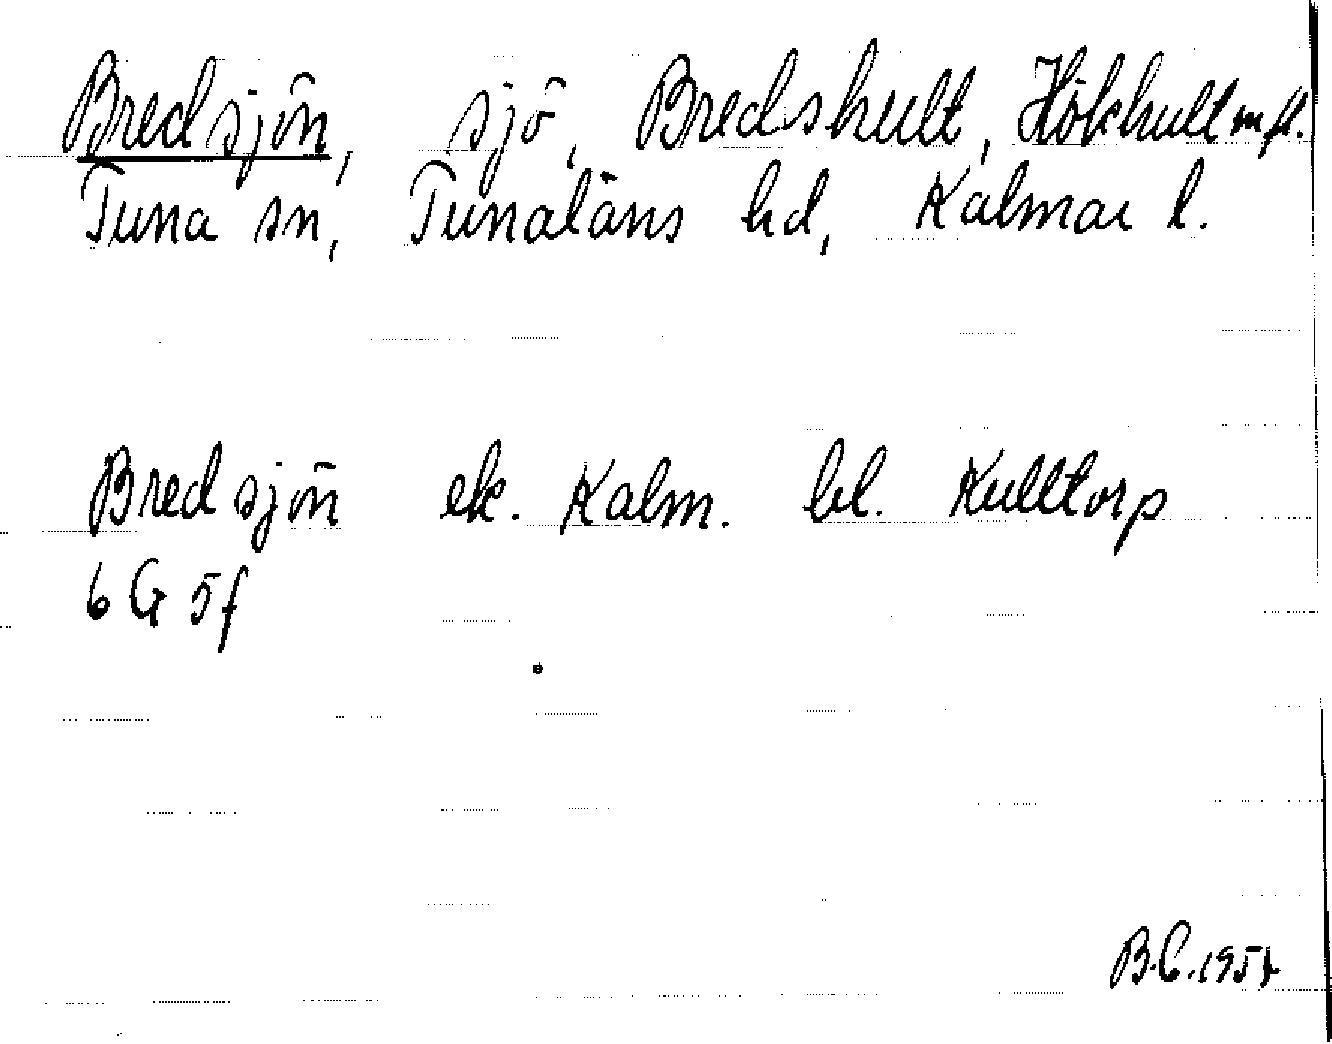 Bredsjön, sjö, Bredshult, Hökhult m fl.
Tuna sn, Tunaläns hd, Kalmar l.
Bredsjön ek. Kalm. bl. Kulltorp
6 G 5f
B.C.